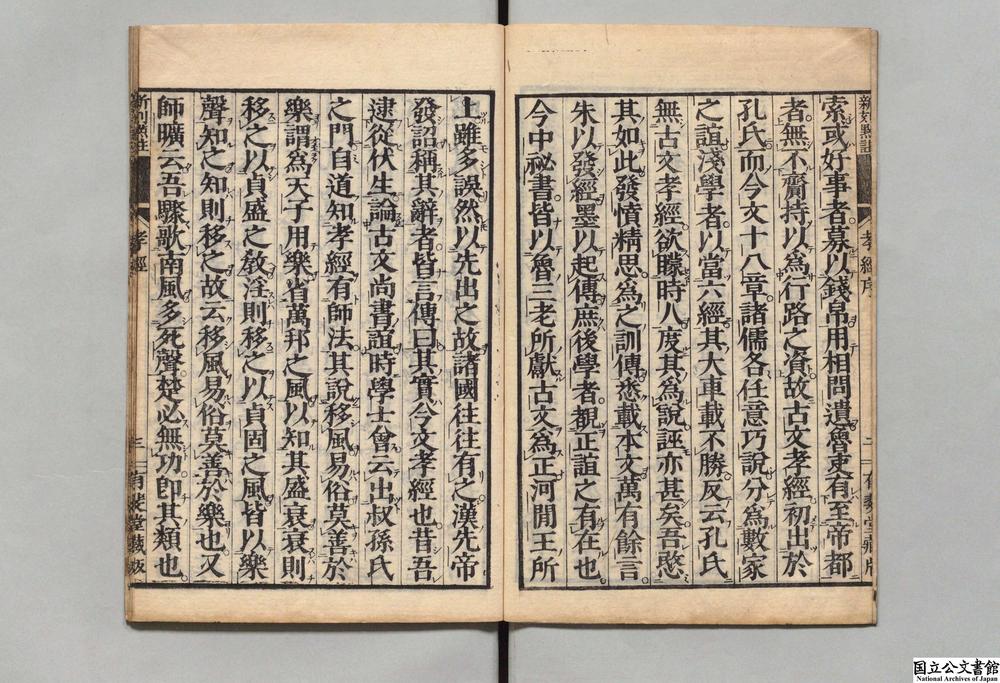 索或好事者募以錢帛用相問遺魯吏有至帝都
者無不齎持以爲行路之資故古文孝經初出於
孔氏而今文十八章諸儒各任意巧說分爲數家
之誼淺學者以當六經其大車載不勝反云孔氏
無古文孝經欲矇時人度其爲說誣亦甚矣吾愍
其如此發憤精思爲之訓傳悉載本文萬有餘言
朱以發經墨以起傳庶後學者覩正誼之有在也
今中祕書皆以魯三老所獻古文爲正河閒王所
上雖多誤然以先出之故諸國往往有之漢先帝
發詔稱其辭者皆言傳曰其實今文孝經也昔吾
逮從伏生論古文尚書誼時學士會云出叔孫氏
之門自道知孝經有師法其說移風易俗莫善於
樂謂爲天子用樂省萬邦之風以知其盛衰衰則
移之以貞盛之敎淫則移之以貞固之風皆以樂
聲知之知則移之故云移風易俗莫善於樂也又
師曠云吾驟歌南風多死聲楚必無功卽其類也
孝經序
孝經
二
有裴堂藏版
国立公文書館
National Archives of Japan